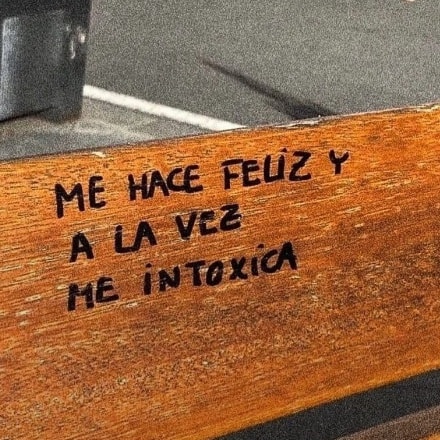 ME HACE FELIZ Y
A LA VEZ
ME INTOXICA